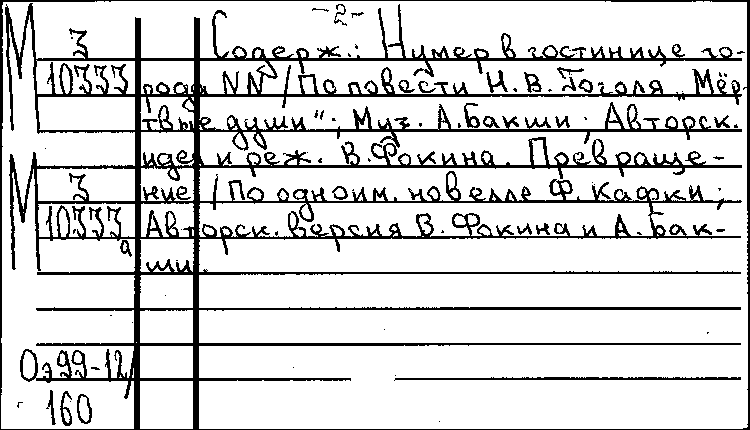 -2-
М З 10333
Содерж.: Нумер в гостинице го-
рода NN / По повести Н.В. Гоголя „Мёр-
твые души“; Муз. А. Бакши; Авторск.
идея и реж. В. Фокина. Превраще-
ние / По одноим. новелле Ф. Кафки;
Авторск. версия В. Фокина и А. Бак-
ши.
М З 10333а
Оэ99-12/
160